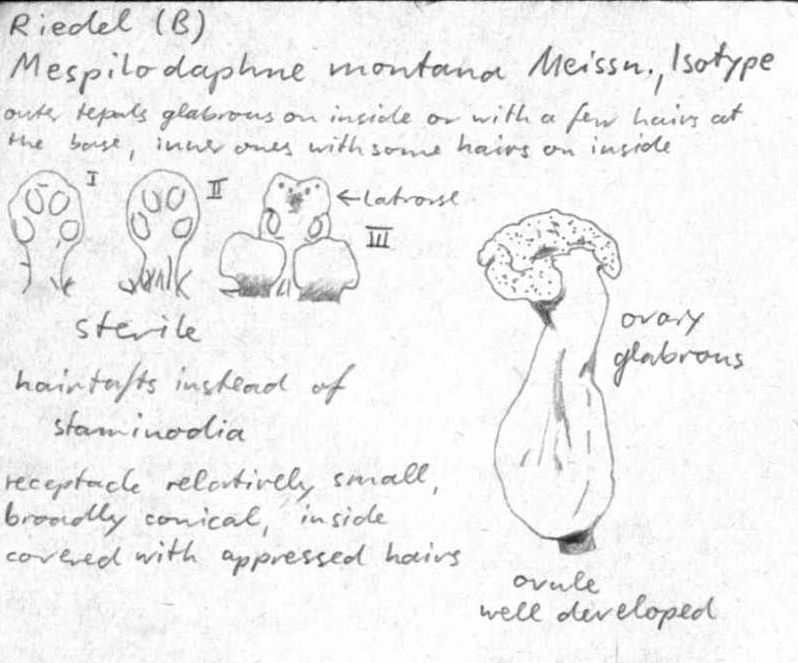 Riedel (B)
Mespilodaphne montana Meissn., Isotype
outer tepals glabrous on inside or with a few hairs at
the base, inner ones with some hairs on inside
I
II
← latrorse
III
sterile
ovary
glabrous
hairtufts instead of
staminodia
receptacle relatively small,
broadly conical, inside
covered with appressed hairs
ovule
well developed